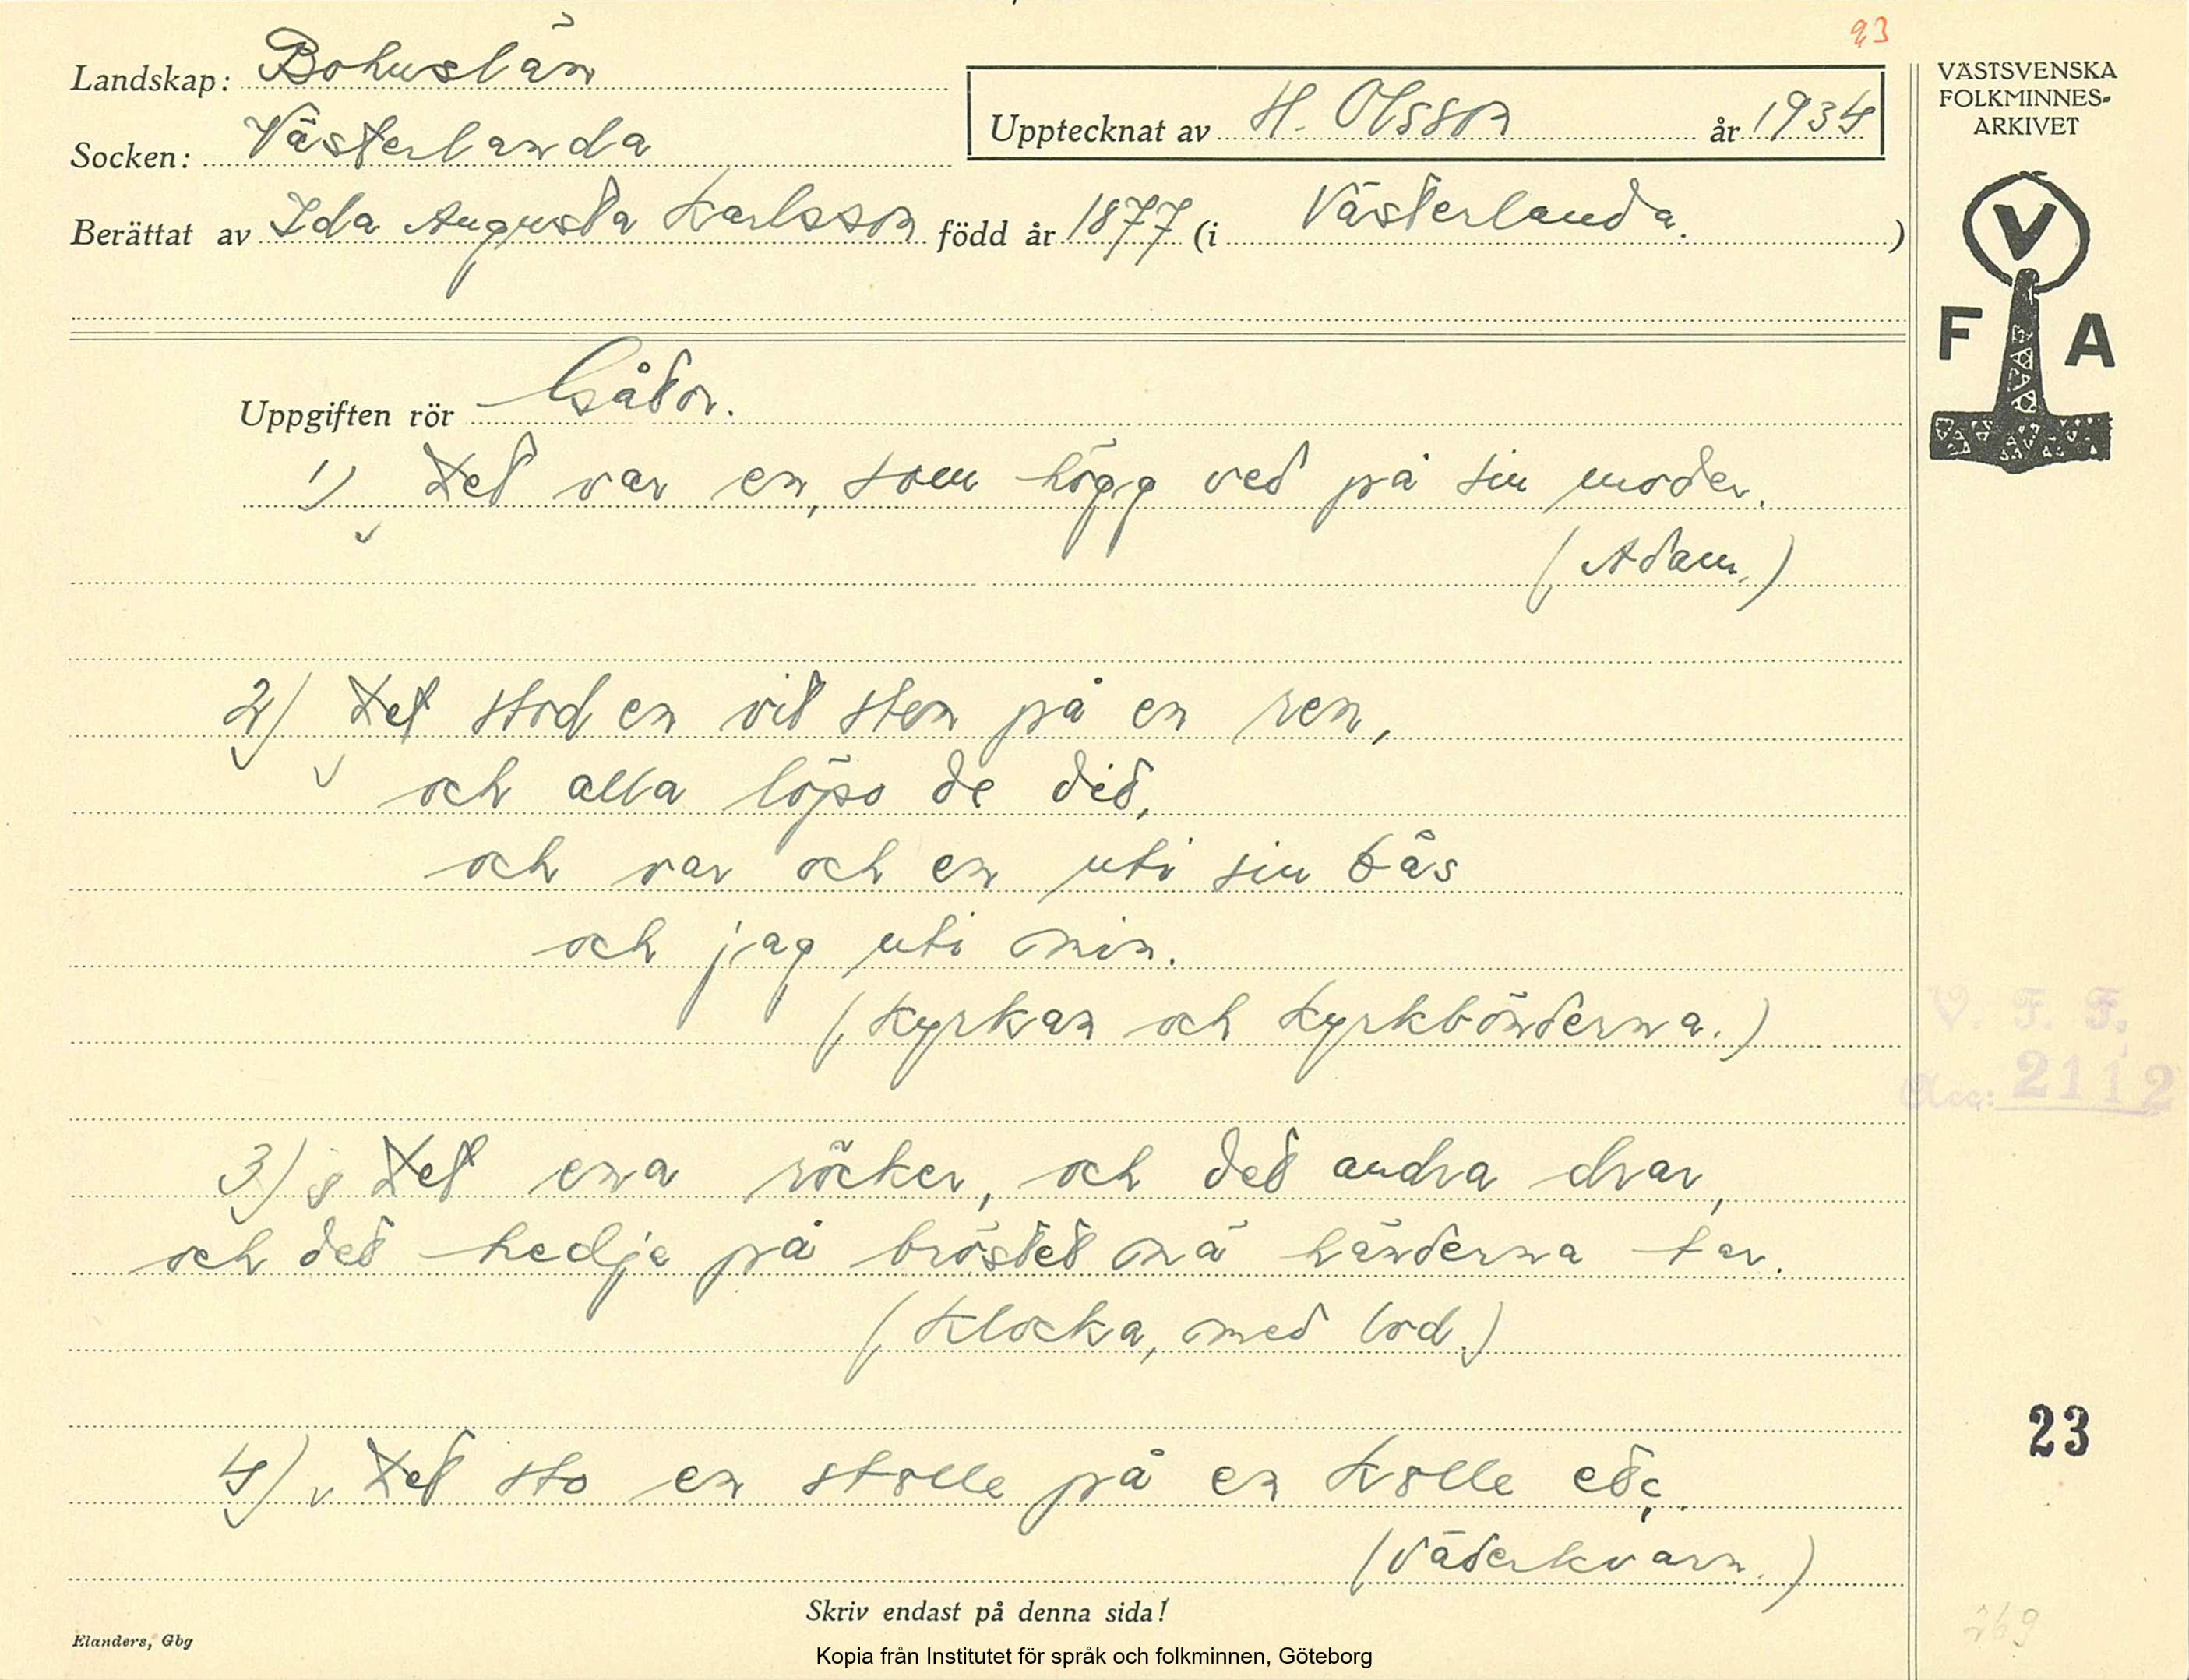 93
Landskap: Bohuslän
Socken: Västerlanda
Upptecknat av H. Olsson år 1934
Berättat av Ida Augusta Karlsson född år 1877 (i Västerlanda. )
VÄSTSVENSKA
FOLKMINNES-
ARKIVET
V
F A
Uppgiften rör Gåtor.
1) Det var en, som högg ved på sin moder.
(Adam.)
2) Det stod en vit sten på en ren,
och alla löpo de did,
och var och en uti sin bås
och jag uti min.
(Kyrkan och kyrkbönderna.)
V. F. F.
Acc: 2112
3) Det ena röcker, och det andra drar,
och det tredje på bröstet mä händerna tar.
(Klocka, med lod.)
23
4) Det sto en stolle på en kolle etc.
(Väderkvarn.)
Skriv endast på denna sida!
Elanders, Gbg
269
Kopia från Institutet för språk och folkminnen, Göteborg